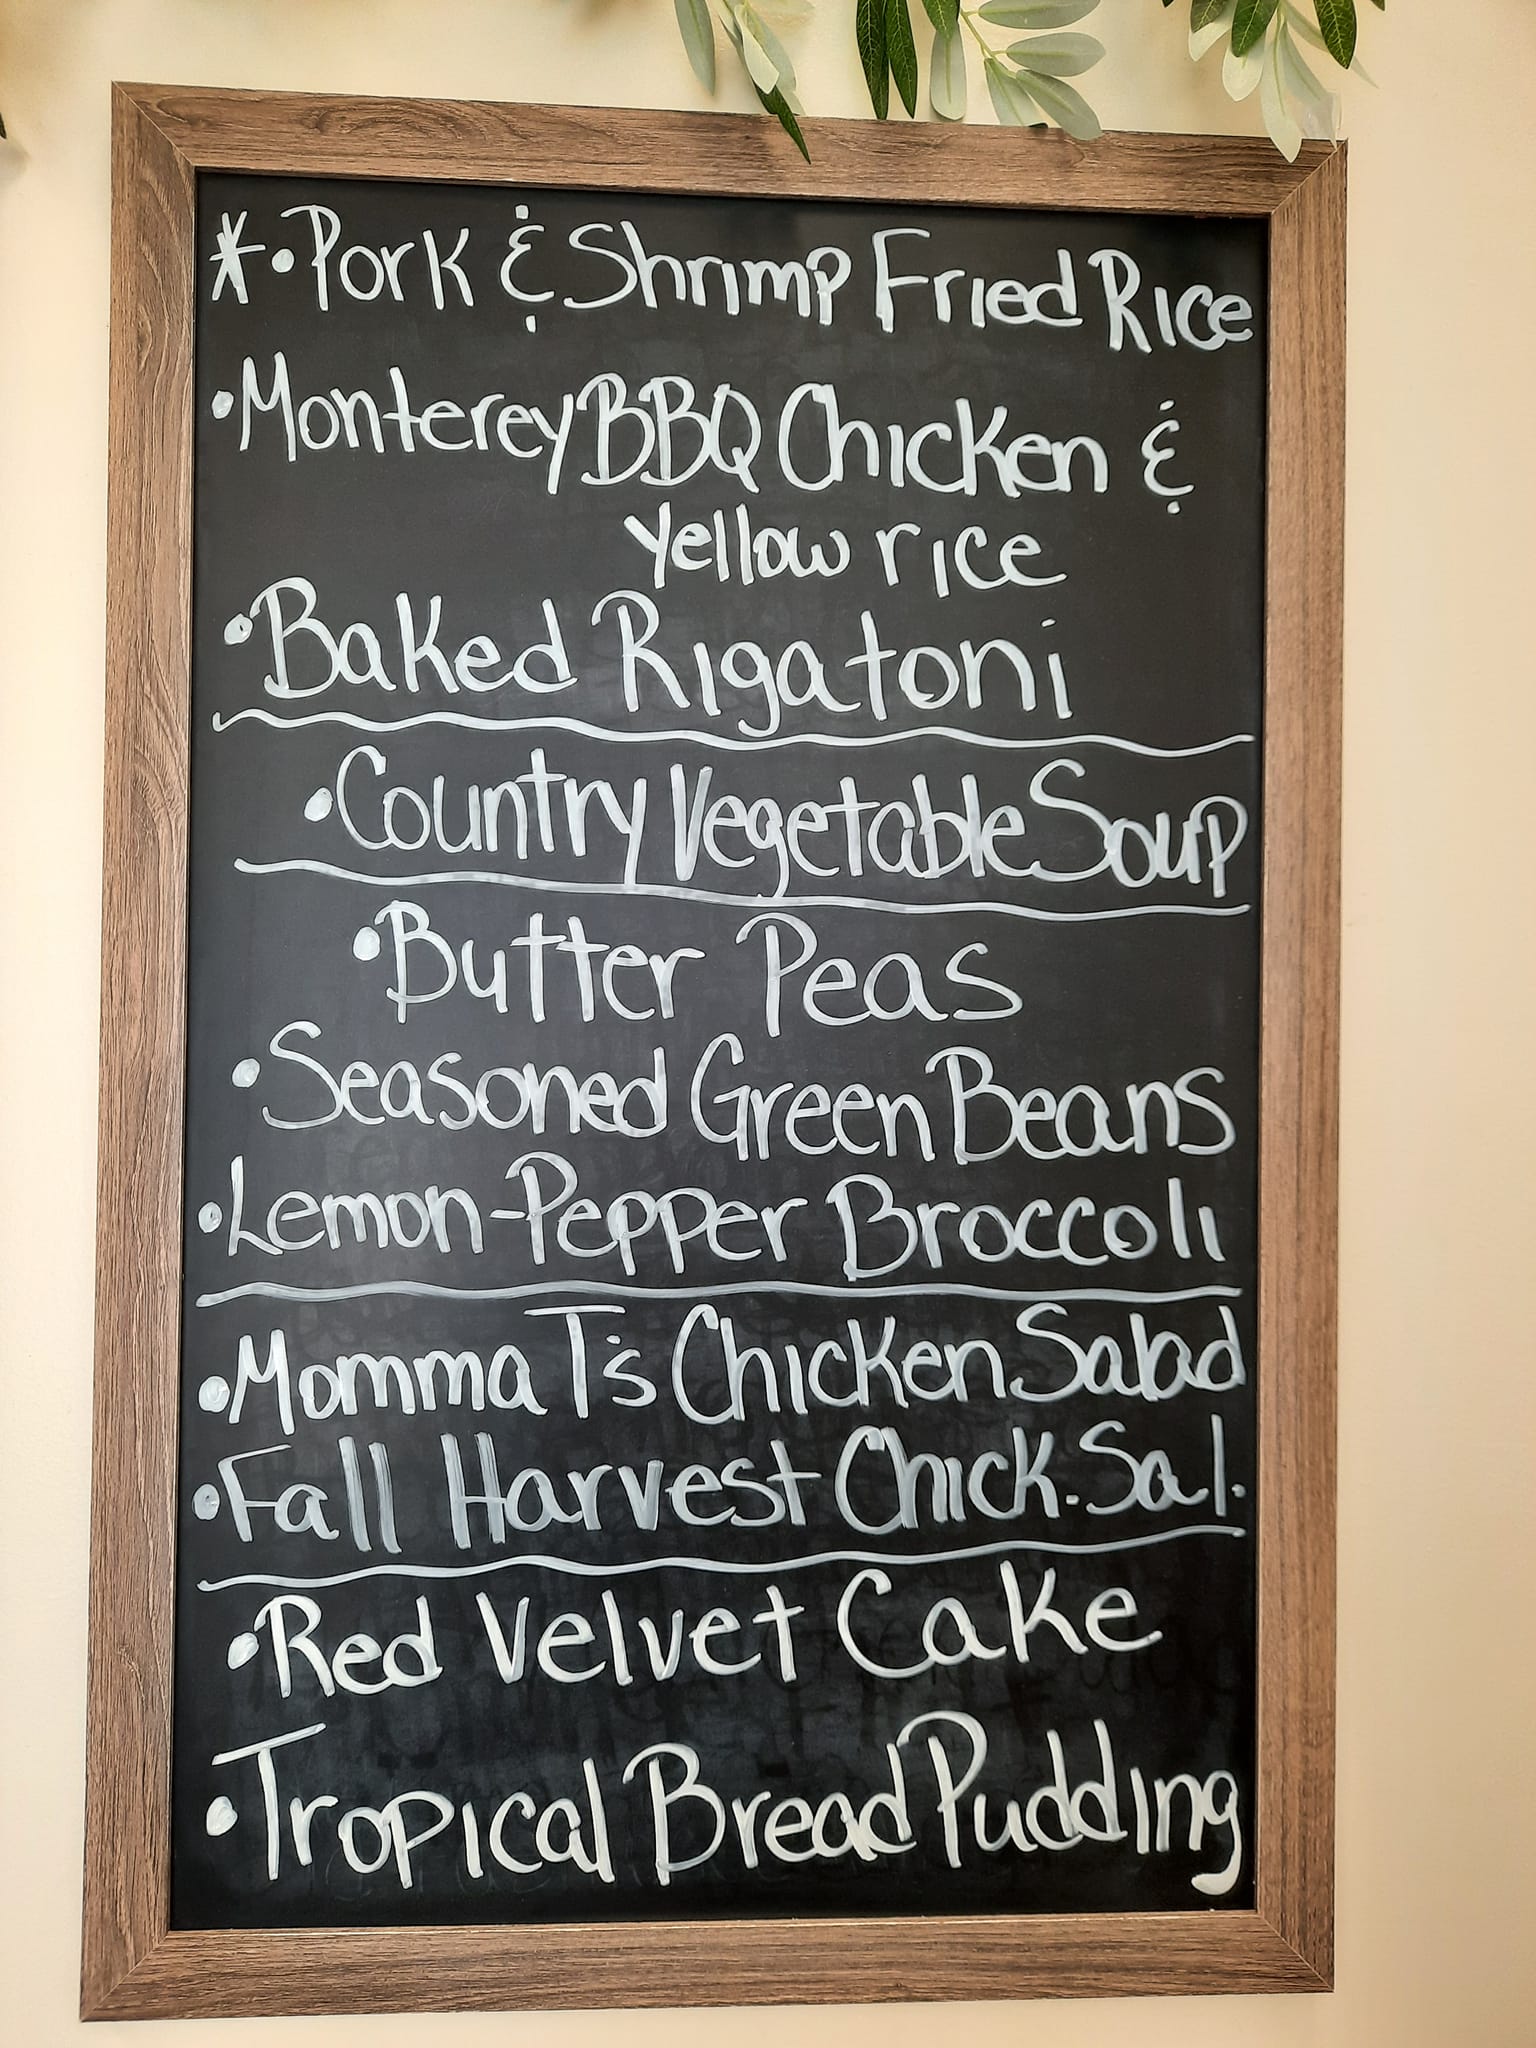 *•Pork & Shrimp Fried Rice
•Monterey BBQ Chicken &
Yellow rice
•Baked Rigatoni
•Country Vegetable Soup
•Butter Peas
•Seasoned Green Beans
•Lemon-Pepper Broccoli
•Momma T's Chicken Salad
•Fall Harvest Chick. Sal.
•Red Velvet Cake
•Tropical Bread Pudding